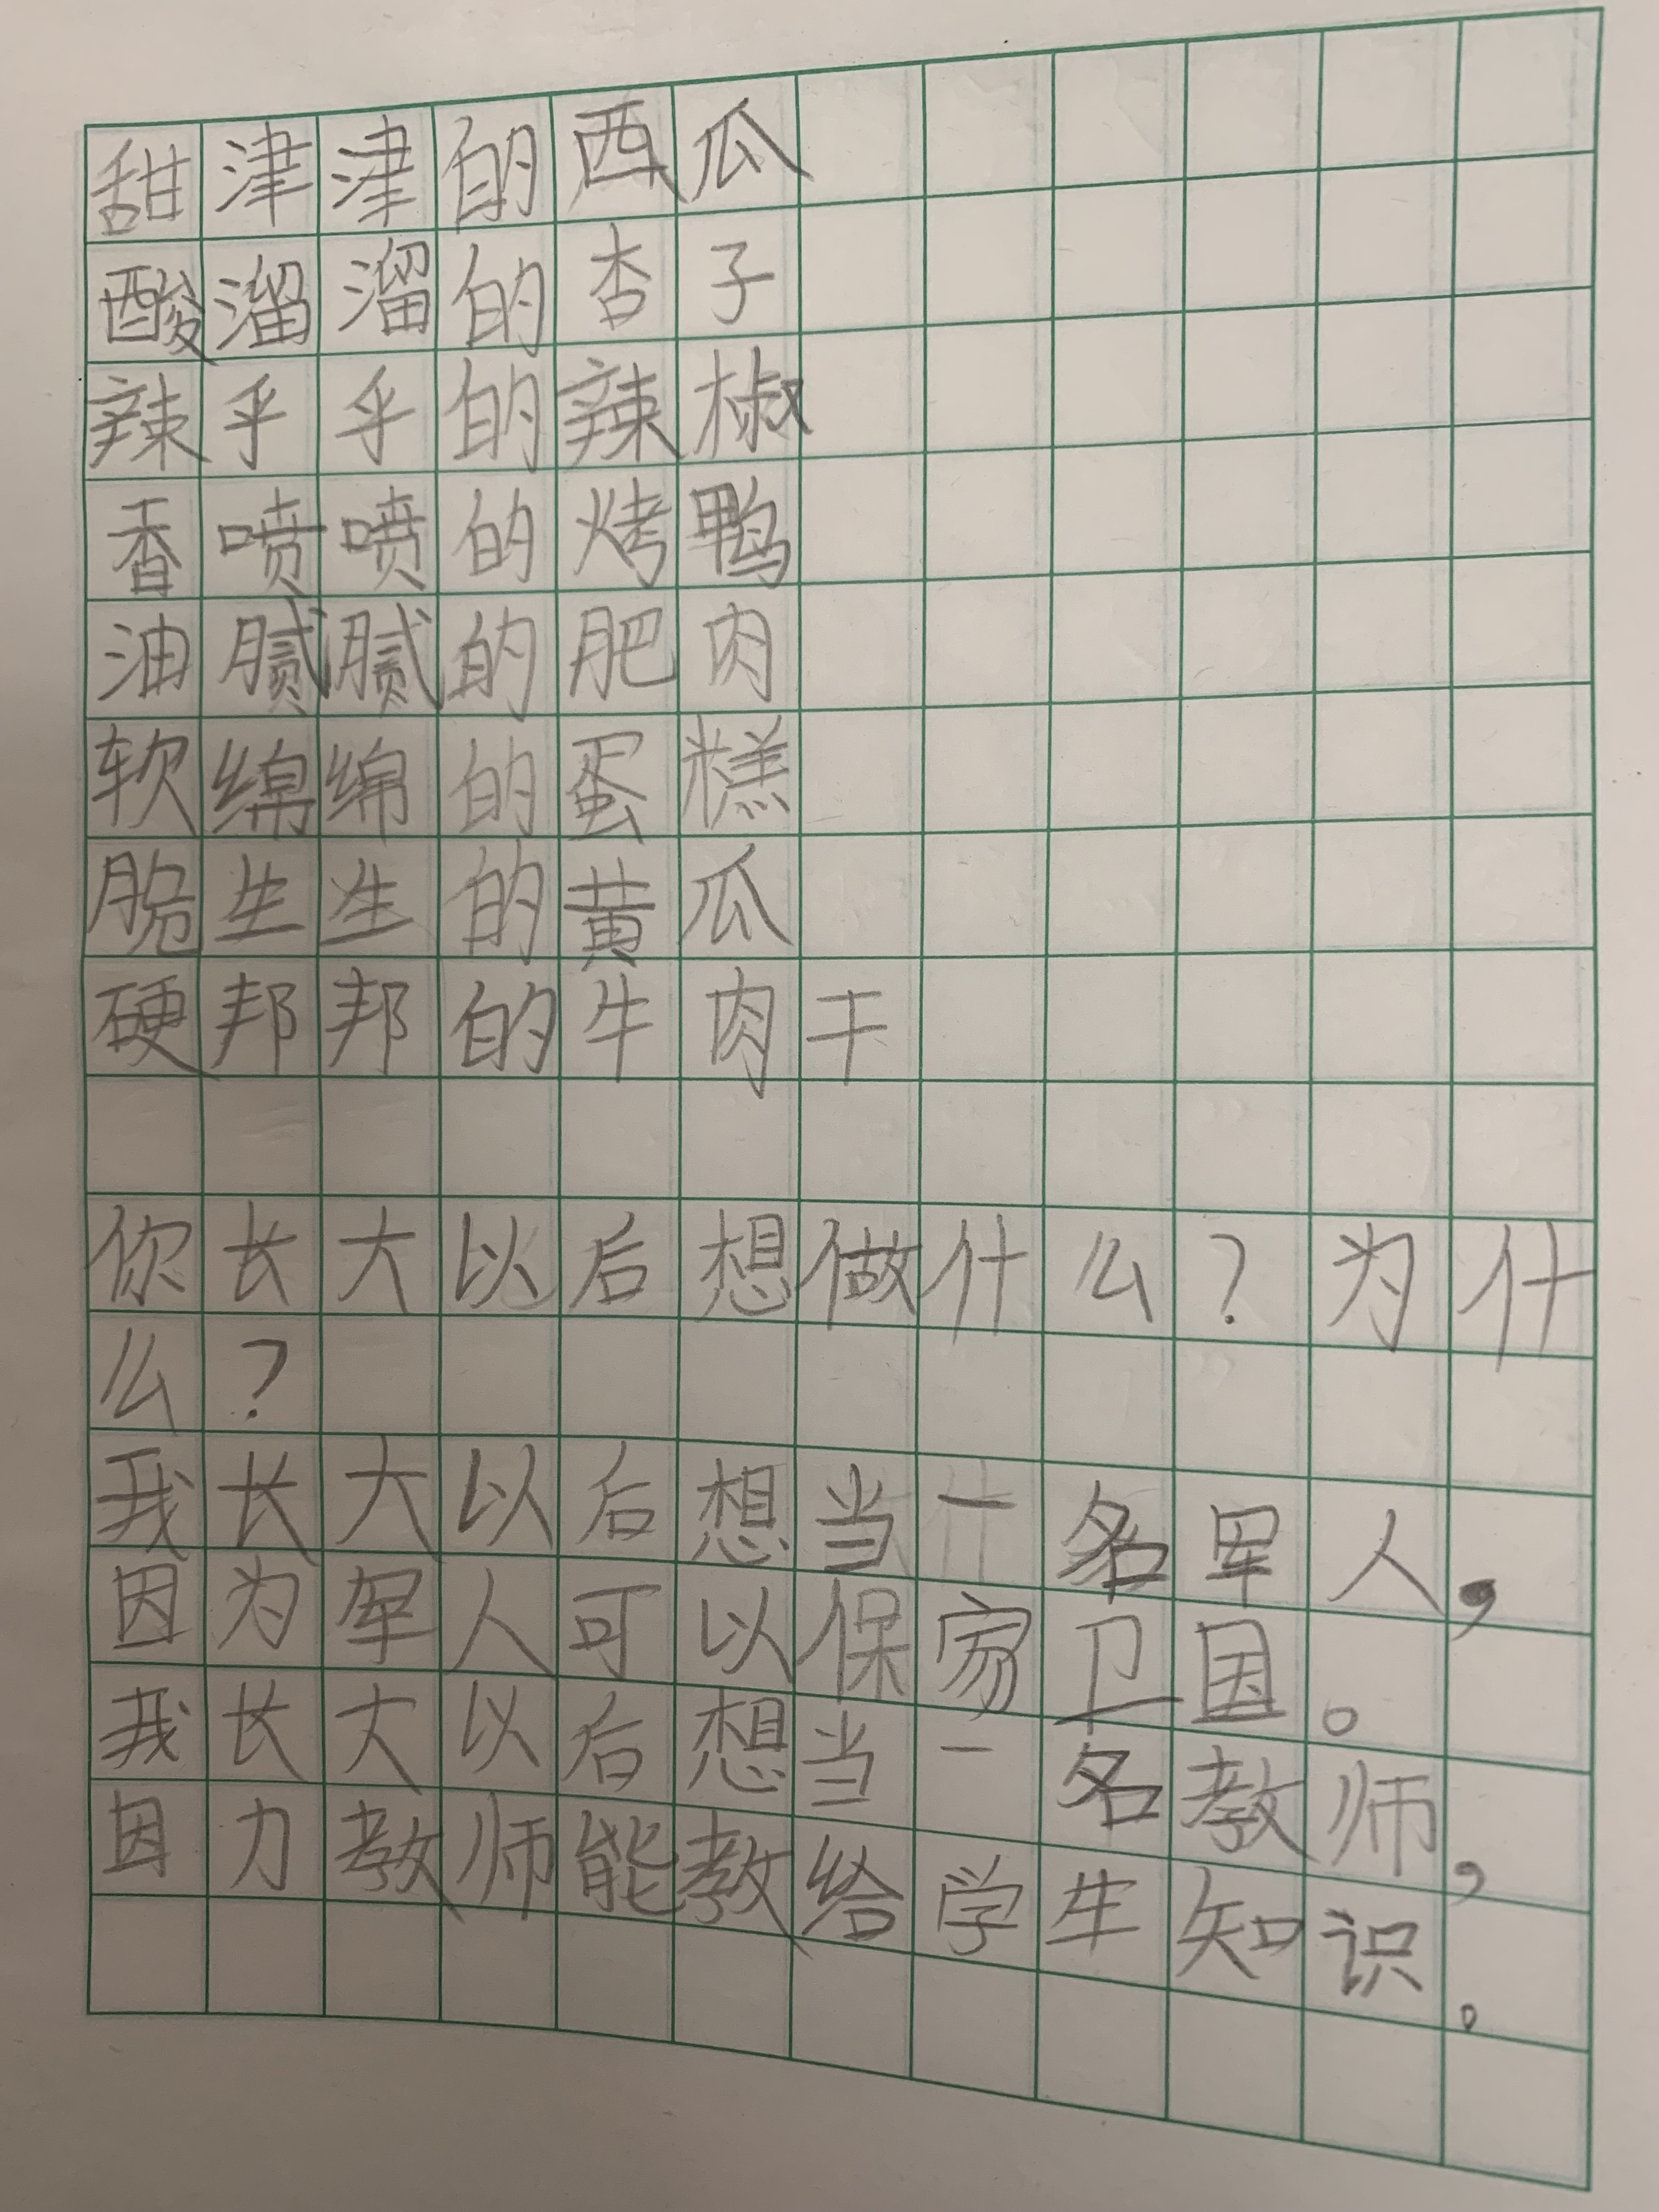 甜津津的西瓜
酸溜溜的杏子
辣乎乎的辣椒
香喷喷的烤鸭
油腻腻的肥肉
软绵绵的蛋糕
脆生生的黄瓜
硬邦邦的牛肉干
你长大以后想做什么？为什
么？
我长大以后想当一名军人，
因为军人可以保家卫国。
我长大以后想当一名教师，
因力教师能教给学生知识。